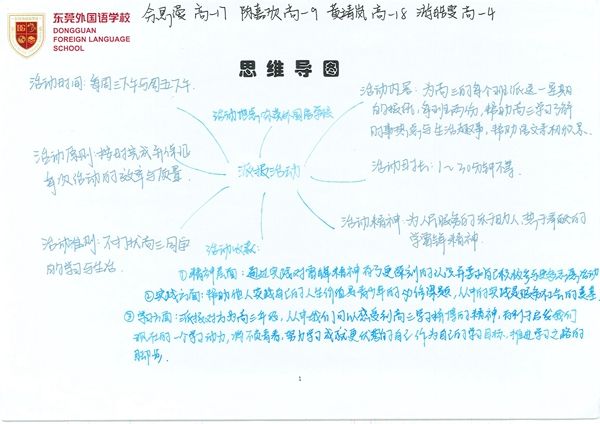 东莞外国语学校
DONGGUAN
FOREIGN LANGUAGE
SCHOOL
高一17 陈嘉欣 高一9 黄靖岚 高一18 高一4
思维导图
活动时间：每周三下午与周五下午
活动地点：东莞外国语学校
活动内容：为高三的每个班派送一星期
的报纸，每班两份，帮助高三学习了解
时事热点与生活趣事，帮助作文素材积累。
活动原则：按时完成并保证
每次活动的效率与质量
派报活动
活动时长：1～30分钟不等
活动精神：为人民服务的乐于助人，甘于奉献的
学雷锋精神
活动准则：不打扰高三同学
的学习与生活
活动收获：
①精神层面：通过实践对雷锋精神有了更深刻的认识
②实践方面：帮助他人实践自己的人生价值是青少年的
③学习方面：派报对象为高三年级，从中我们可以感受到高三学习拼搏的精神，
的一个学习动力，努力学习成就更优秀的自己作为自己的学习目标，推进学习之路的
脚步
1